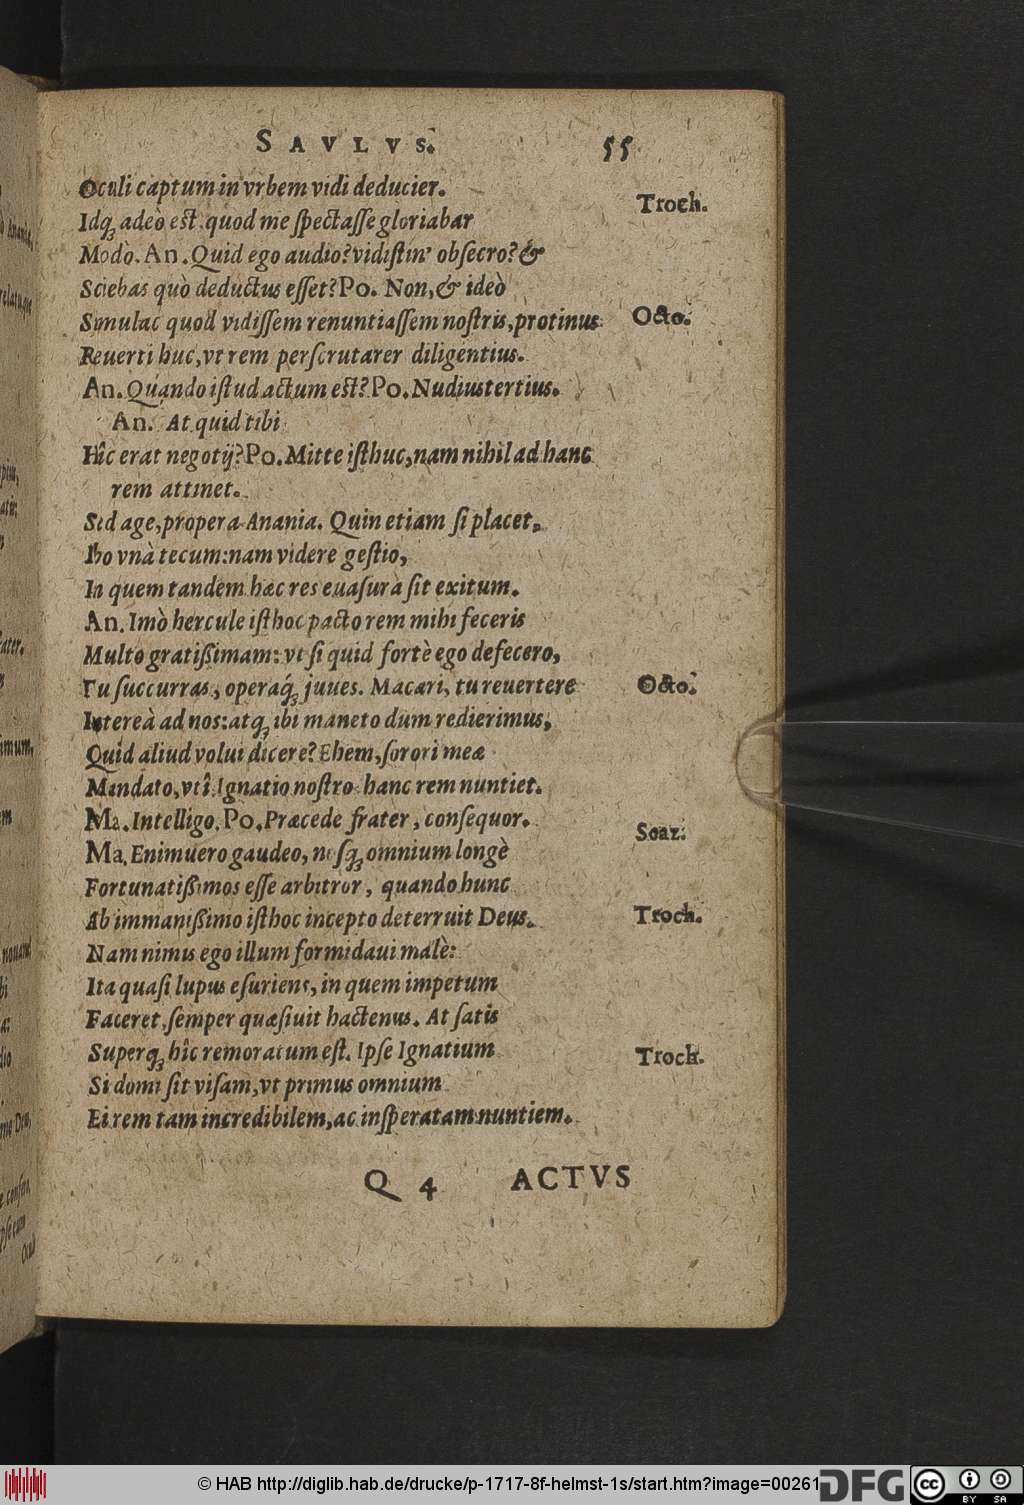 SAVLVS. 55
Oculi captum in vrbem vidi deducier.
Troch.
Idq́; adeò est, quod me spectasse gloriabar
Modò. An. Quid ego audio? vidistin' obsecro? &
Sciebas quò deductus esset? Po. Non, & ideò
Simulac quod vidissem renuntiassem nostris, protinus
Octo.
Reuerti huc, vt rem perscrutarer diligentius.
An. Quando istud actum est? Po. Nudiustertius.
An. At quid tibi
Hîc erat negotij? Po. Mitte isthuc, nam nihil ad hanc
rem attinet.
Sed age, propera Anania. Quin etiam si placet,
Ibo vnà tecum: nam videre gestio,
In quem tandem hæc res euasura sit exitum.
An. Imò hercule isthoc pacto rem mihi feceris
Multo gratißimam: vt si quid fortè ego defecero,
Tu succurras, operaq́; juues. Macari, tu reuertere
Octo.
Intereà ad nos: atq; ibi maneto dum redierimus,
Quid aliud volui dicere? Ehem, sorori meæ
Mandato, vti Ignatio nostro hanc rem nuntiet.
Ma. Intelligo. Po. Præcede frater, consequor.
Scaz.
Ma. Enimuero gaudeo, nosq; omnium longè
Fortunatißimos esse arbitror, quando hunc
Ab immanißimo isthoc incepto deterruit Deus.
Troch.
Nam nimus ego illum formidaui malè:
Ita quasi lupus esuriens, in quem impetum
Faceret, semper quæsiuit hactenus. At satis
Superq; hîc remoratum est. Ipse Ignatium
Troch.
Si domi sit visam, vt primus omnium
Ei rem tam incredibilem, ac insperatam nuntiem.
Q 4 ACTVS
© HAB http://diglib.hab.de/drucke/p-1717-8f-helmst-1s/start.htm?image=00261
DFG
cc BY SA